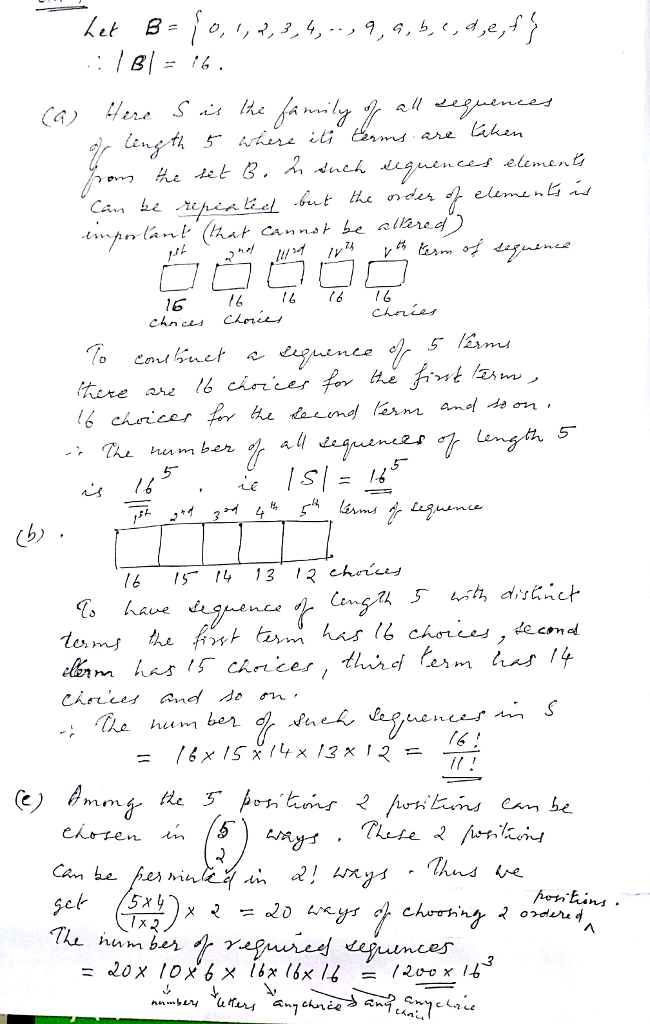 Let B = { 0, 1, 2, 3, 4, .., 9, a, b, c, d, e, f }
∴ |B| = 16.
(a) Here S is the family of all sequences
of length 5 where its terms are taken
from the set B. In such sequences elements
can be repeated but the order of elements is
important (that cannot be altered)
1st 2nd IIIrd IVth Vth term of sequence
16 16 16 16 16
choices choices choices
To construct a sequence of 5 terms
there are 16 choices for the first term,
16 choices for the second term and so on.
∴ The number of all sequences of length 5
is 16^5. ie |S| = 16^5
1st 2nd 3rd 4th 5th terms of sequence
(b).
16 15 14 13 12 choices
To have sequence of length 5 with distinct
terms the first term has 16 choices, second
term has 15 choices, third term has 14
choices and so on.
∴ The number of such sequences in S
= 16 x 15 x 14 x 13 x 12 = 16!/11!
(c) Among the 5 positions 2 positions can be
chosen in (5 2) ways. These 2 positions
can be permuted in 2! ways. Thus we
get (5x4/1x2) x 2 = 20 ways of choosing 2 ordered positions.
The number of required sequences
= 20 x 10 x 6 x 16 x 16 x 16 = 1200 x 16^3
numbers letters any choice any choice any choice